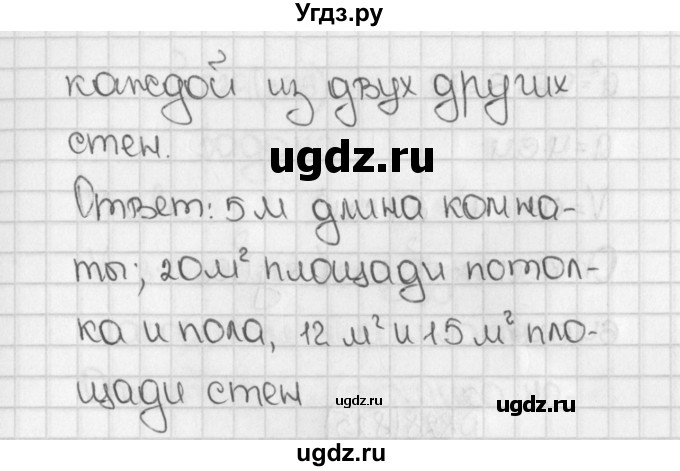 Угдз.ру
каждой из двух других
стен.
ugdz.ru
Ответ: 5 м длина комна-
ты; 20 м² площади потол-
ка и пола, 12 м² и 15 м² пло-
щади стен
ugdz.ru
ugdz.ru
ugdz.ru